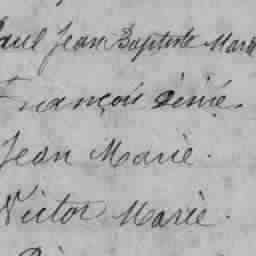 Paul Jean Baptiste Marie
François
Jean Marie.
Victor Marie.